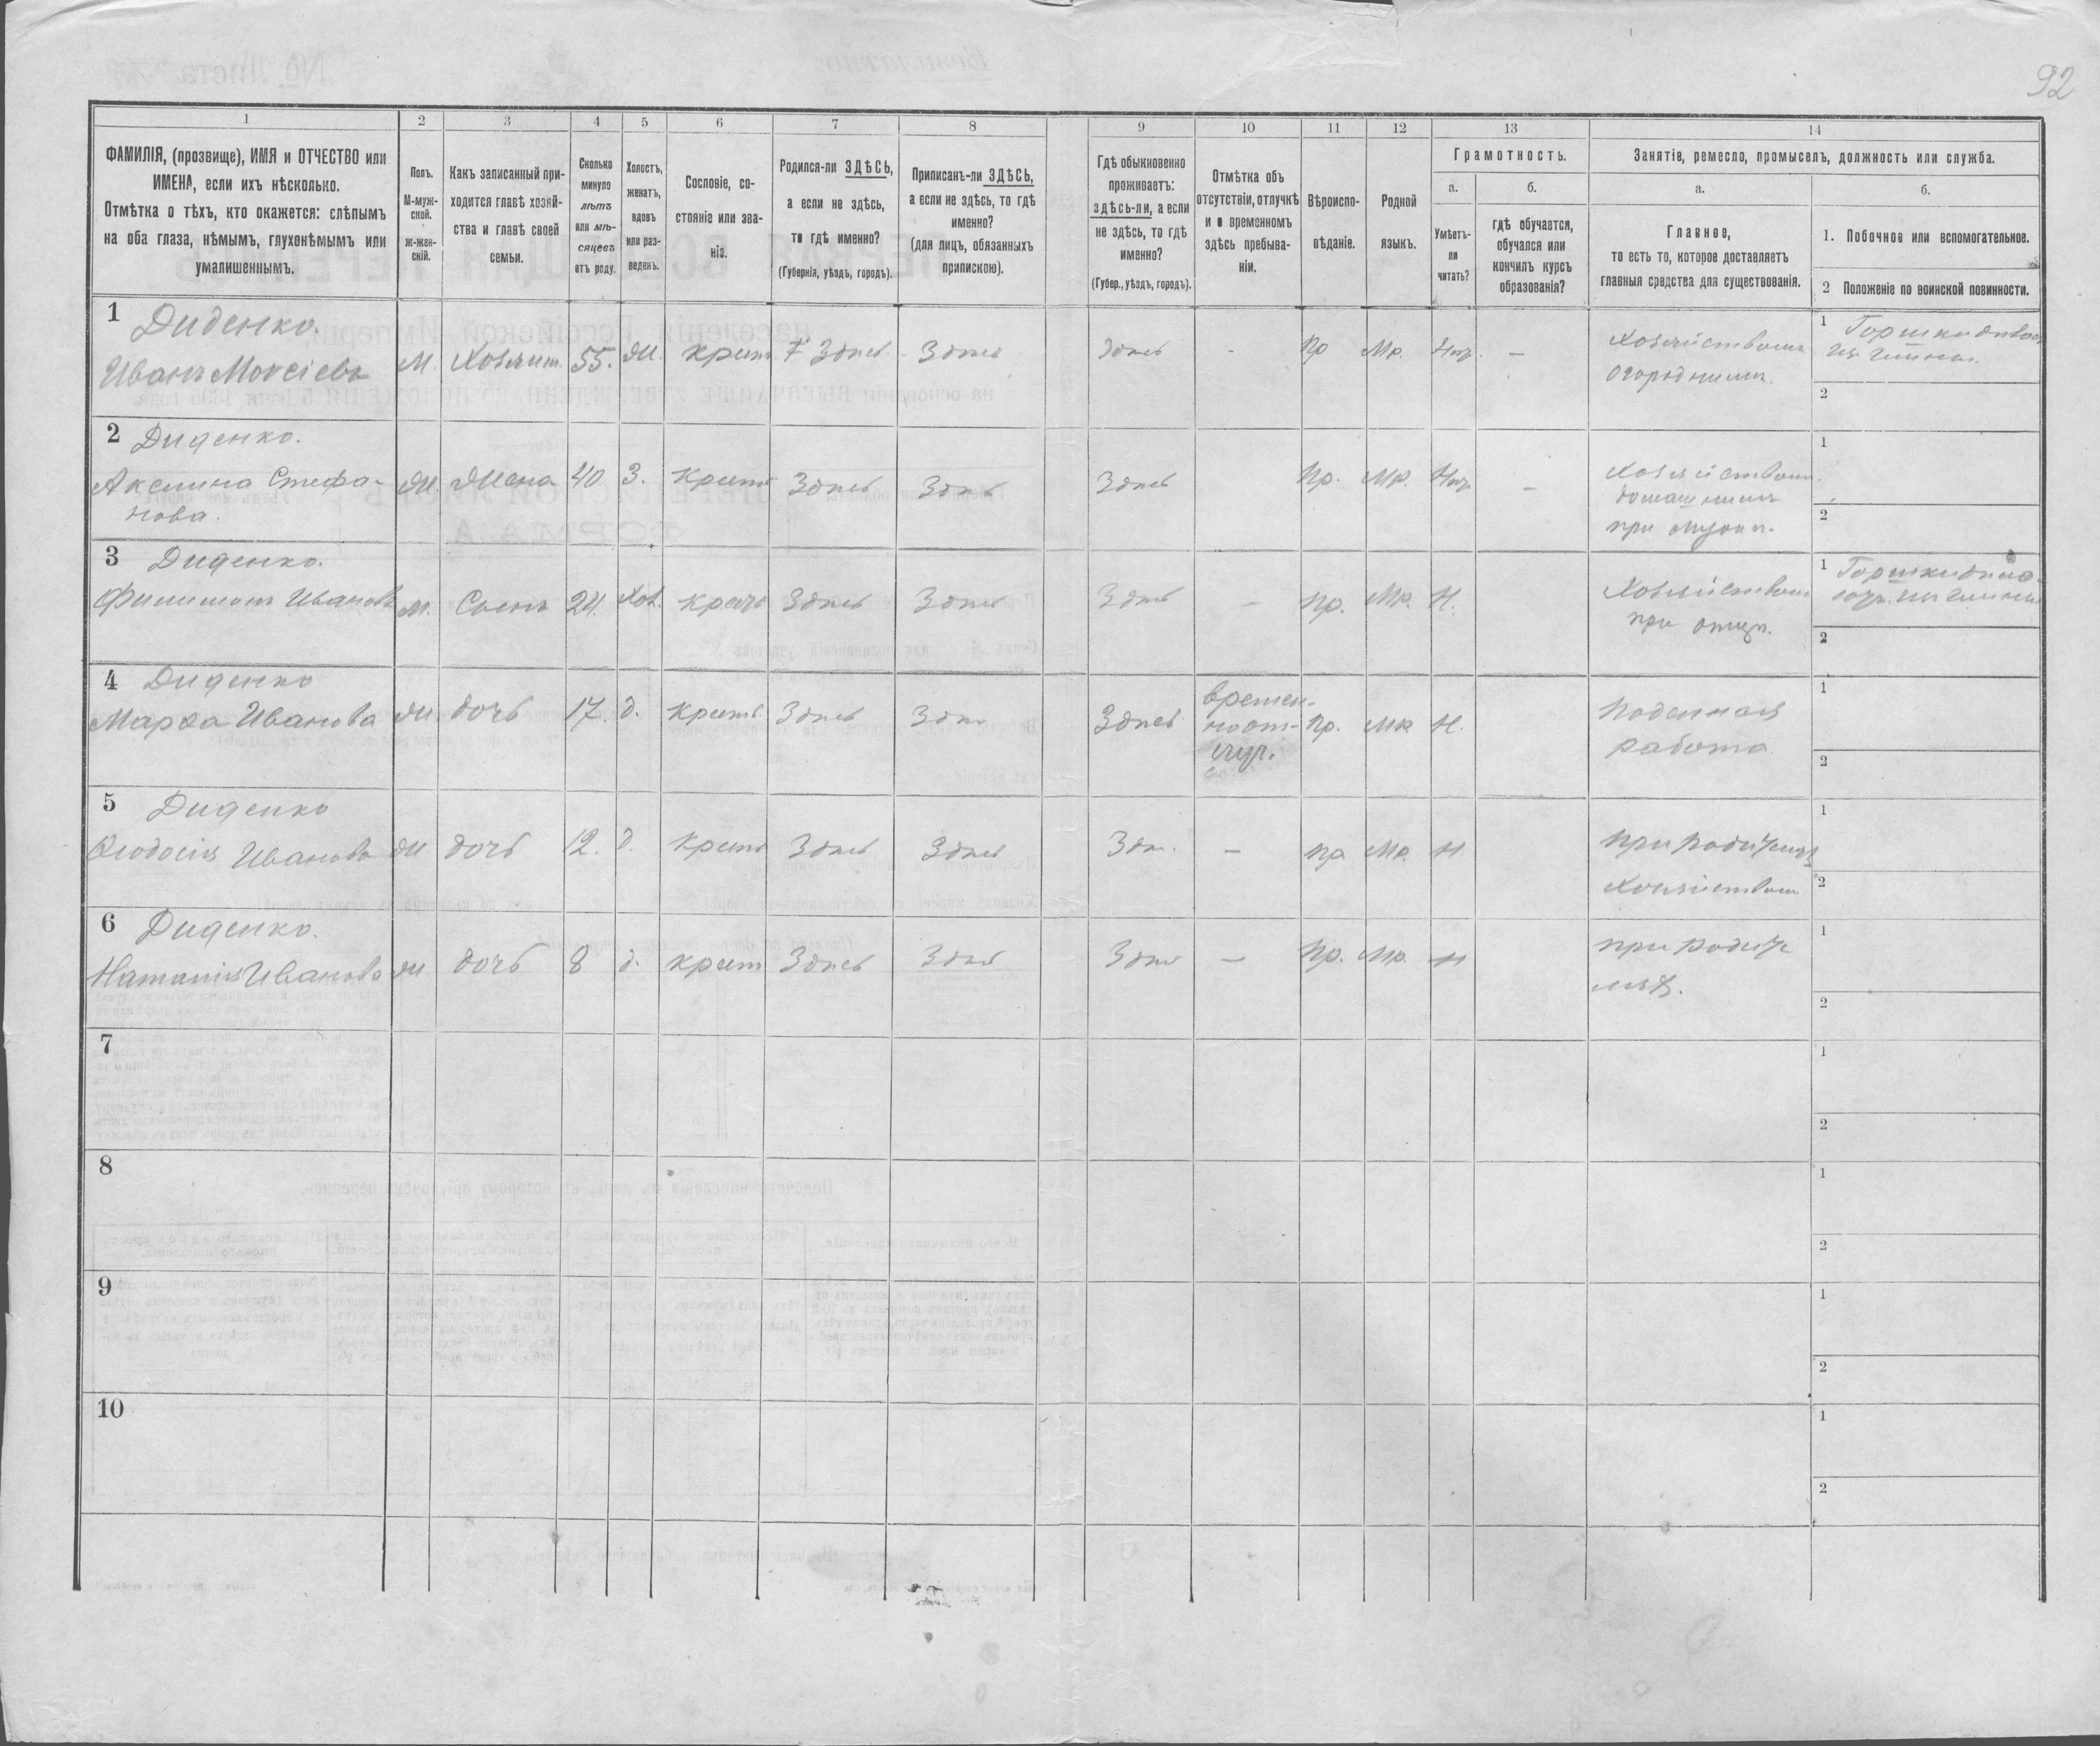 92
1 2 3 4 5 6 7 8 9 10 11 12 13 14
ФАМИЛІЯ, (прозвище), ИМЯ и ОТЧЕСТВО или
ИМЕНА, если ихъ нѣсколько.
Отмѣтка о тѣхъ, кто окажется: слѣпымъ
на оба глаза, нѣмымъ, глухонѣмымъ или
умалишеннымъ.
Полъ.
М-муж-
ской.
ж-жен-
скій.
Какъ записанный при-
ходится главѣ хозяй-
ства и главѣ своей
семьи.
Сколько
минуло
лѣтъ
или мѣ-
сяцевъ
отъ роду.
Холостъ,
женатъ,
вдовъ
или раз-
веденъ.
Сословіе, со-
стояніе или зва-
ніе.
Родился-ли ЗДѢСЬ,
а если не здѣсь,
то гдѣ именно?
(Губернія, уѣздъ, городъ).
Приписанъ-ли ЗДѢСЬ,
а если не здѣсь, то гдѣ
именно?
(для лицъ, обязанныхъ
припискою).
Гдѣ обыкновенно
проживаетъ:
здѣсь-ли, а если
не здѣсь, то гдѣ
именно?
(Губер., уѣздъ, городъ).
Отмѣтка объ
отсутствіи, отлучкѣ
и о временномъ
здѣсь пребыва-
ніи.
Вѣроиспо-
вѣданіе.
Родной
языкъ.
Грамотность.
а.
Умѣетъ-
ли
читать?
б.
гдѣ обучается,
обучался или
кончилъ курсъ
образованія?
Занятіе, ремесло, промыселъ, должность или служба.
а.
Главное,
то есть то, которое доставляетъ
главныя средства для существованія.
б.
1. Побочное или вспомогательное.
2 Положеніе по воинской повинности.
1 Диденко.
Иванъ Моисіевъ М. Хозяин 55. Ж. крест. Здѣсь Здѣсь Здѣсь - Пр Мр. —
Хозяйствомъ
огороднимъ.
1
2
2 Диденко.
Аксинія Стефа-
нова. Ж. Жена 40 З. крест Здѣсь Здѣсь Здѣсь Пр. Мр. —
Хозяйством
домашнимъ
при мужѣ.
1
2
3 Диденко.
Филимонъ Ивановъ М. Сынъ 24. Хол. крест Здѣсь Здѣсь Здѣсь — Пр. Мр. Н.
Хозяйством
при отцѣ.
1
2
4 Диденко
Марѳа Иванова Ж. дочь 17. д. крест. Здѣсь Здѣсь Здѣсь
времен-
но от-
луч.
Пр. Мр Н.
Поденная
работа
1
2
5 Диденко
Ѳеодосія Иванова Ж дочь 12. д. крест Здѣсь Здѣсь Здѣ. — Пр Мр. Н
при родителях
Хозяйством
1
2
6 Диденко.
Наталія Иванова Ж дочь 8 д. крест Здѣсь Здѣсь Здѣсь — Пр. Мр. Н
при родите
лях.
1
2
7
1
2
8
1
2
9
1
2
10
1
2